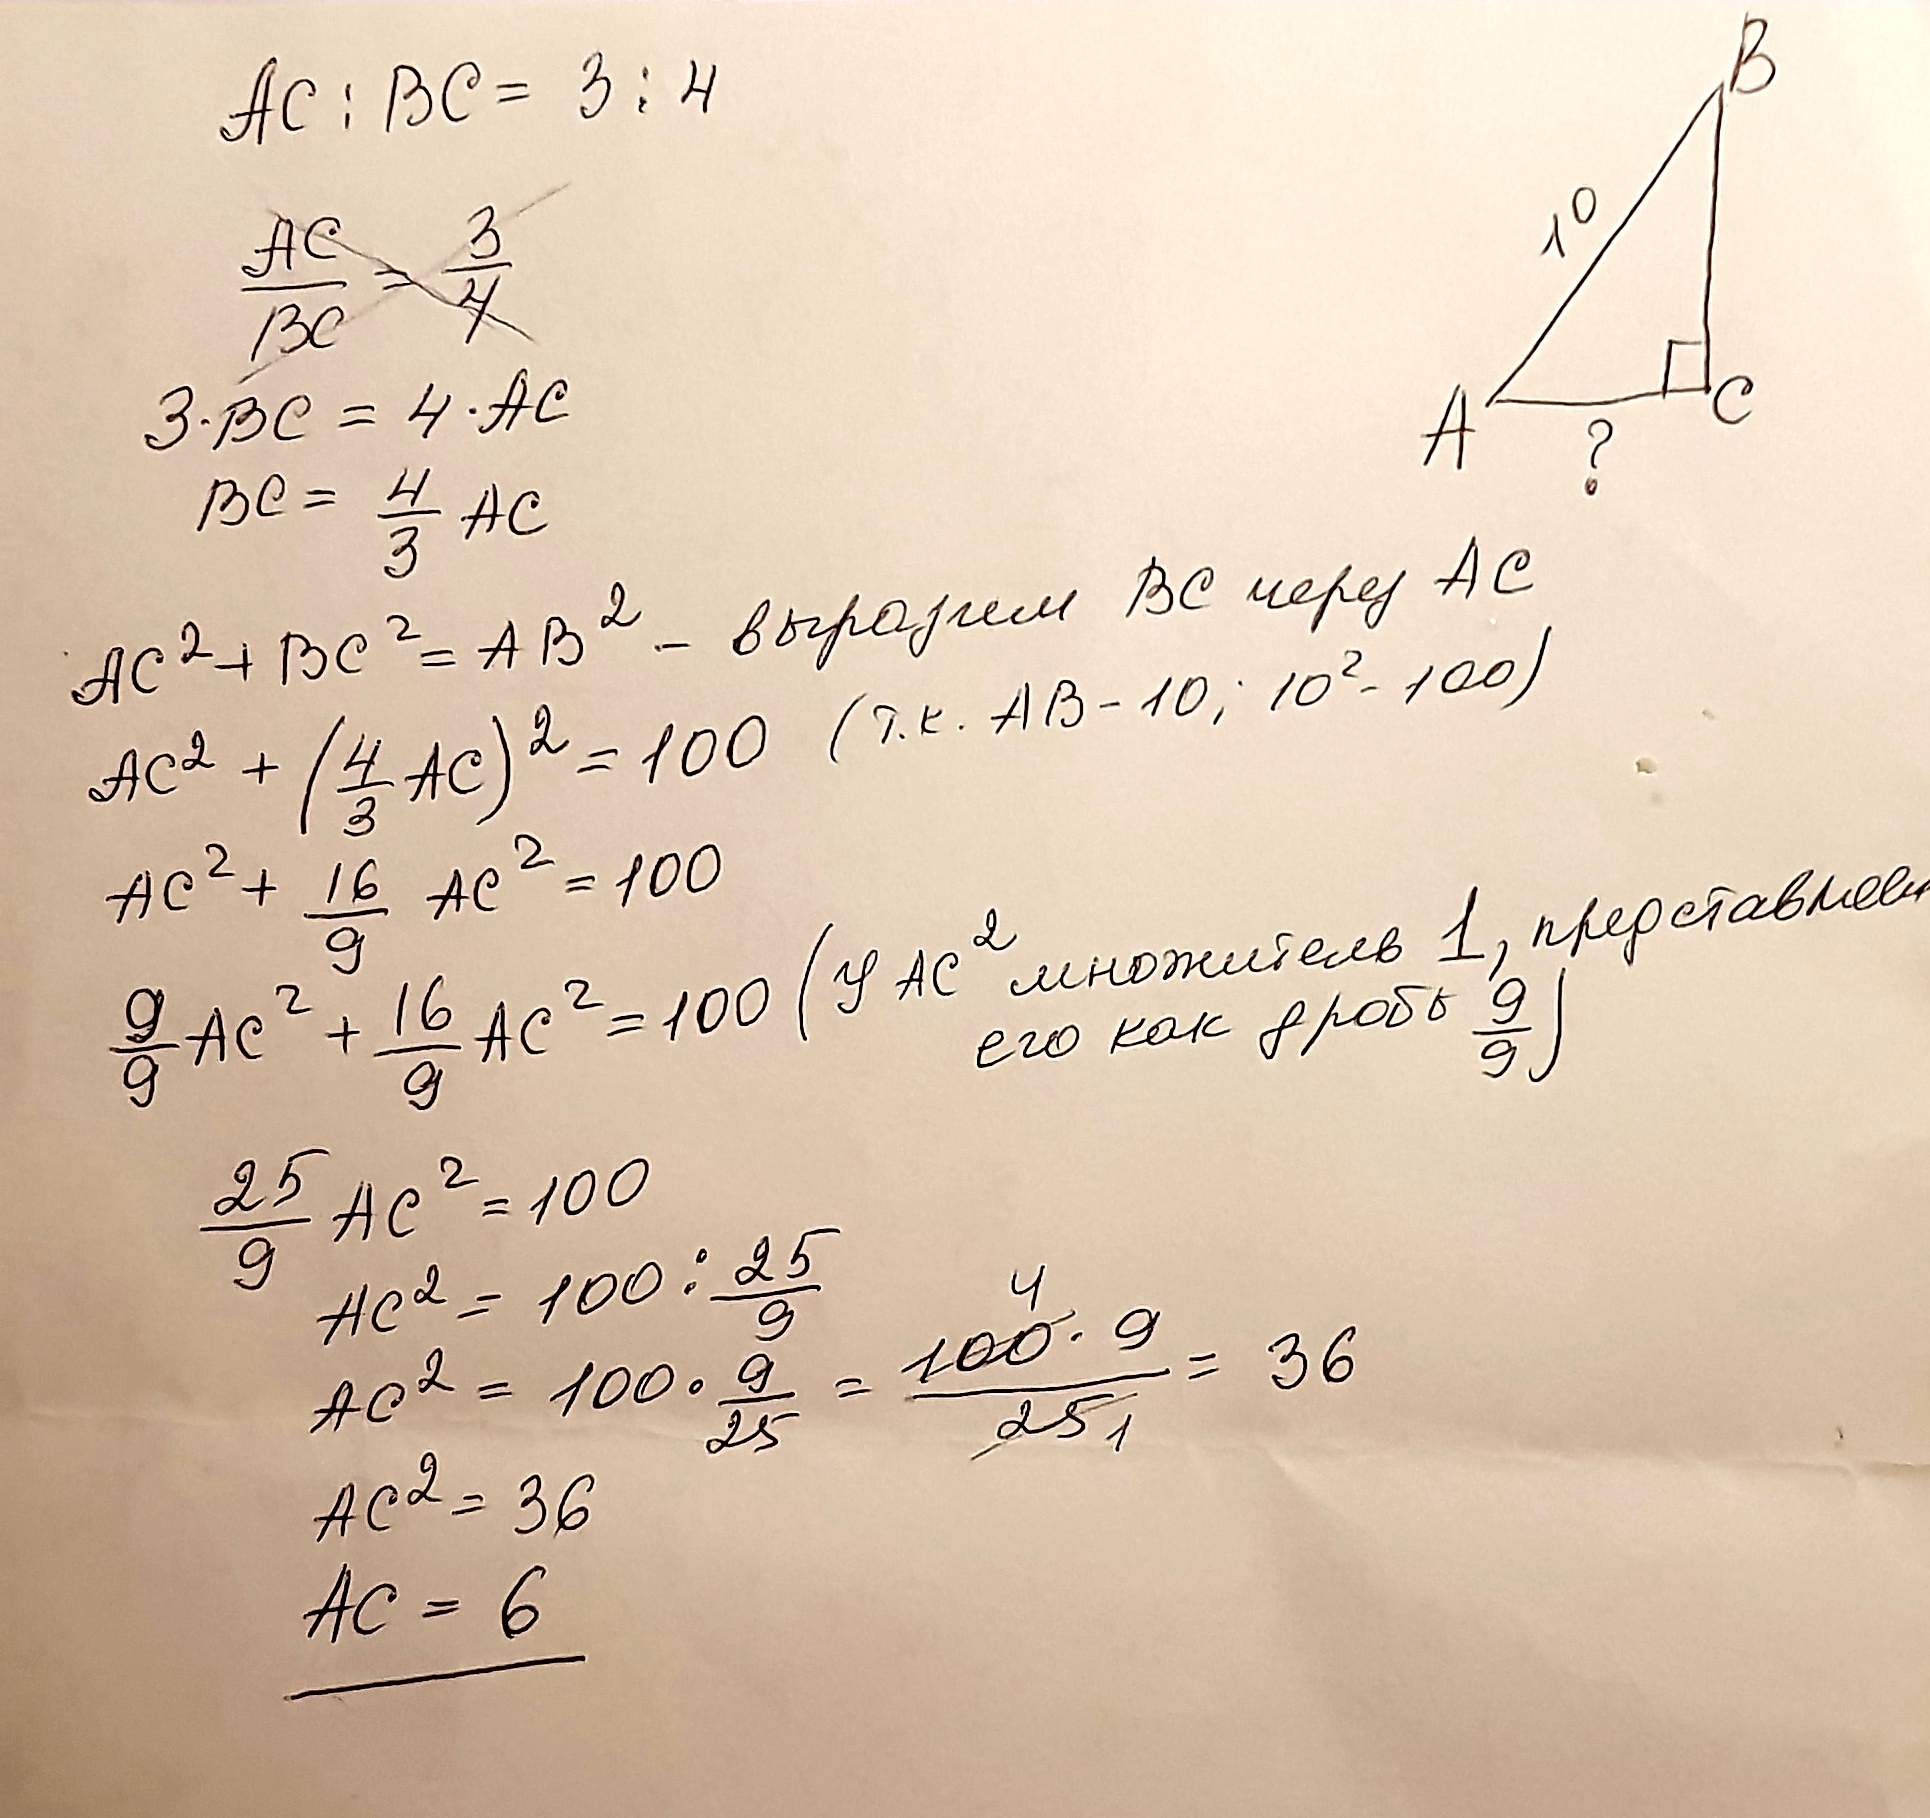 AC : BC = 3 : 4
B
10
A
C
?
AC/BC = 3/4
3·BC = 4·AC
BC = 4/3 AC
AC² + BC² = AB² - выразим BC через AC
AC² + (4/3 AC)² = 100 (т.к. AB - 10; 10² - 100)
AC² + 16/9 AC² = 100
9/9 AC² + 16/9 AC² = 100 (у AC² множитель 1, представляем
его как дробь 9/9)
25/9 AC² = 100
AC² = 100 : 25/9
4
AC² = 100 · 9/25 = 100 · 9/25 1 = 36
AC² = 36
AC = 6